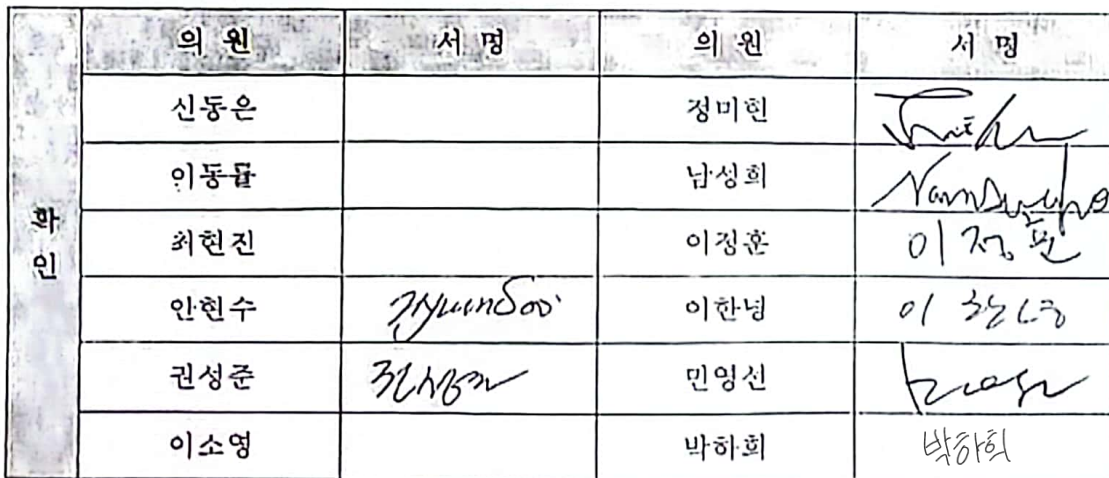 의 원 서 명 의 원 서 명
확인
신동은 정미현
이동률 남성희 NamSungho
최현진 이정훈 이정훈
안현수 HyunSoo 이한녕 이한녕
권성준 권성준 민영선
이소영 박하희 박하희